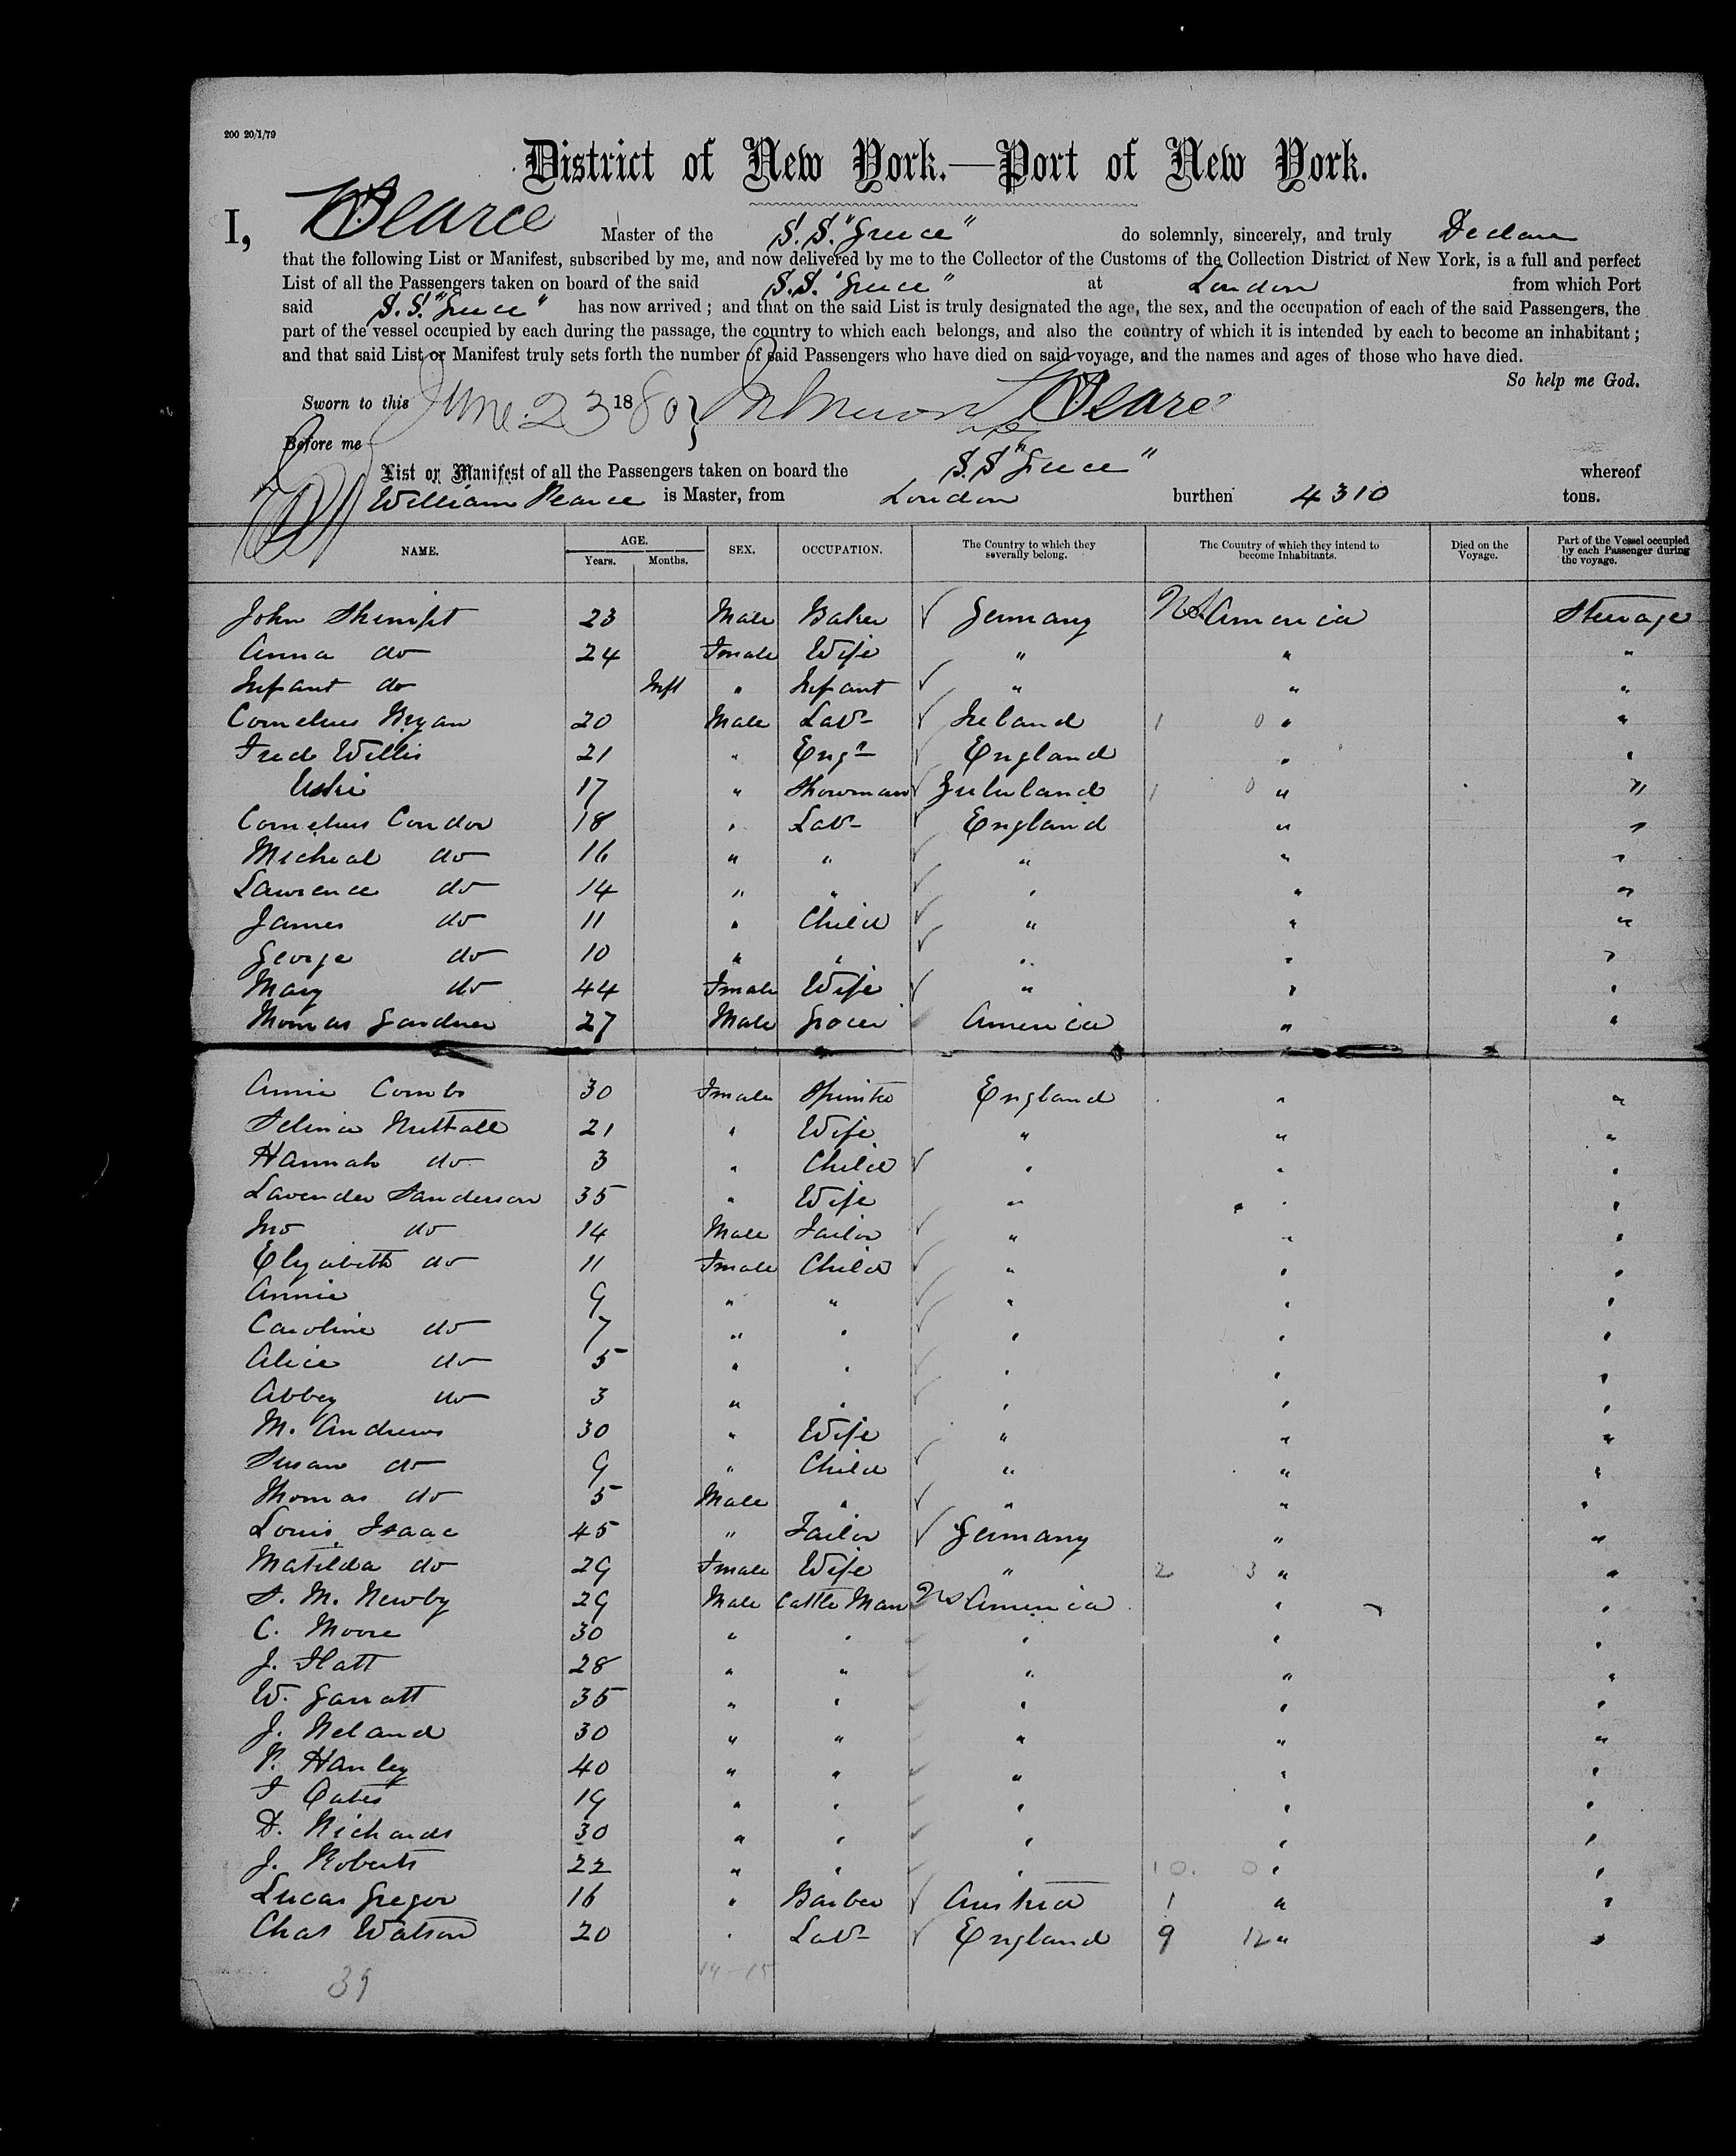 200 20/1/79
District of New York.—Port of New York.
I, W Pearce Master of the S.S. "Greece" do solemnly, sincerely, and truly Declare
that the following List or Manifest, subscribed by me, and now delivered by me to the Collector of the Customs of the Collection District of New York, is a full and perfect
List of all the Passengers taken on board of the said S.S. "Greece" at London from which Port
said S.S. "Greece" has now arrived; and that on the said List is truly designated the age, the sex, and the occupation of each of the said Passengers, the
part of the vessel occupied by each during the passage, the country to which each belongs, and also the country of which it is intended by each to become an inhabitant;
and that said List or Manifest truly sets forth the number of said Passengers who have died on said voyage, and the names and ages of those who have died.
So help me God.
Sworn to this June 23 1880 W Pearce
Before me
List or Manifest of all the Passengers taken on board the S.S "Greece" whereof
William Pearce is Master, from London burthen 4310 tons.
NAME. AGE. Years. Months. SEX. OCCUPATION. The Country to which they severally belong. The Country of which they intend to become Inhabitants. Died on the Voyage. Part of the Vessel occupied by each Passenger during the voyage.
John 23 Male Baker Germany America Steerage
Anna do 24 Female Wife " " "
Infant do Inft " Infant " " "
Cornelius Bryan 20 Male Labr Ireland 1 0 " "
Fredk Willis 21 " Engr England " "
17 " Showman Zululand 1 0 " "
Cornelius Condor 18 " Labr England " "
Micheal do 16 " " " " "
Lawrence do 14 " " " " "
James do 11 " Child " " "
George do 10 " " " " "
Mary do 44 Female Wife " " "
Thomas Gardner 27 Male Grocer America " "
Annie Combs 30 Female Spinster England " "
Selina Nuttall 21 " Wife " " "
Hannah do 3 " Child " " "
Lavender Sanderson 35 " Wife " " "
Jno do 14 Male Tailor " " "
Elizabeth do 11 Female Child " " "
Annie 9 " " " " "
Caroline do 7 " " " " "
Alice do 5 " " " " "
Abbey do 3 " " " " "
M. Andrews 30 " Wife " " "
Susan do 9 " Child " " "
Thomas do 5 Male " " " "
Louis Isaac 45 " Tailor Germany " "
Matilda do 29 Female Wife " 2 3 " "
S. M. Newby 29 Male Cattle Man America " "
C. Moore 30 " " " " "
J. Flatt 28 " " " " "
W. Garratt 35 " " " " "
J. Neland 30 " " " " "
P. Hanley 40 " " " " "
T Oates 19 " " " " "
D. Richards 30 " " " " "
J. Roberts 22 " " " 10. 0 " "
Lucas Gregor 16 " Barber Austria 1 " "
Chas Watson 20 " Labr England 9 12 " "
39